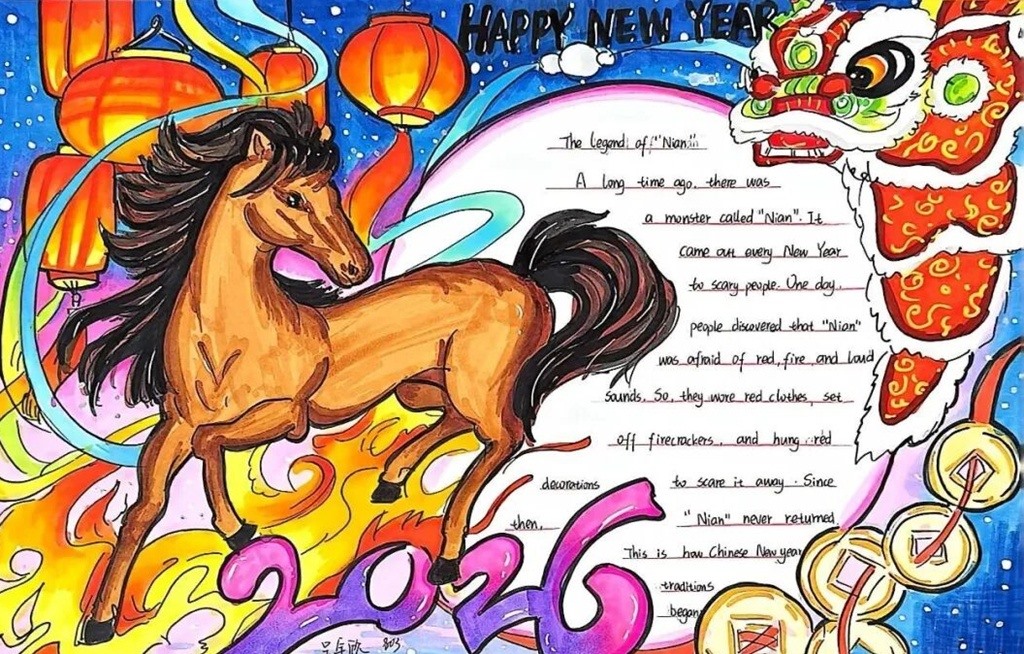 HAPPY NEW YEAR
The legend of "Nian"
A long time ago, there was
a monster called "Nian". It
came out every New Year
to scary people. One day,
people discovered that "Nian"
was afraid of red, fire, and loud
sounds. So, they wore red clothes, set
off firecrackers, and hung red
decorations to scare it away. Since
then, "Nian" never returned
This is how Chinese New year
traditions
began
2026
803